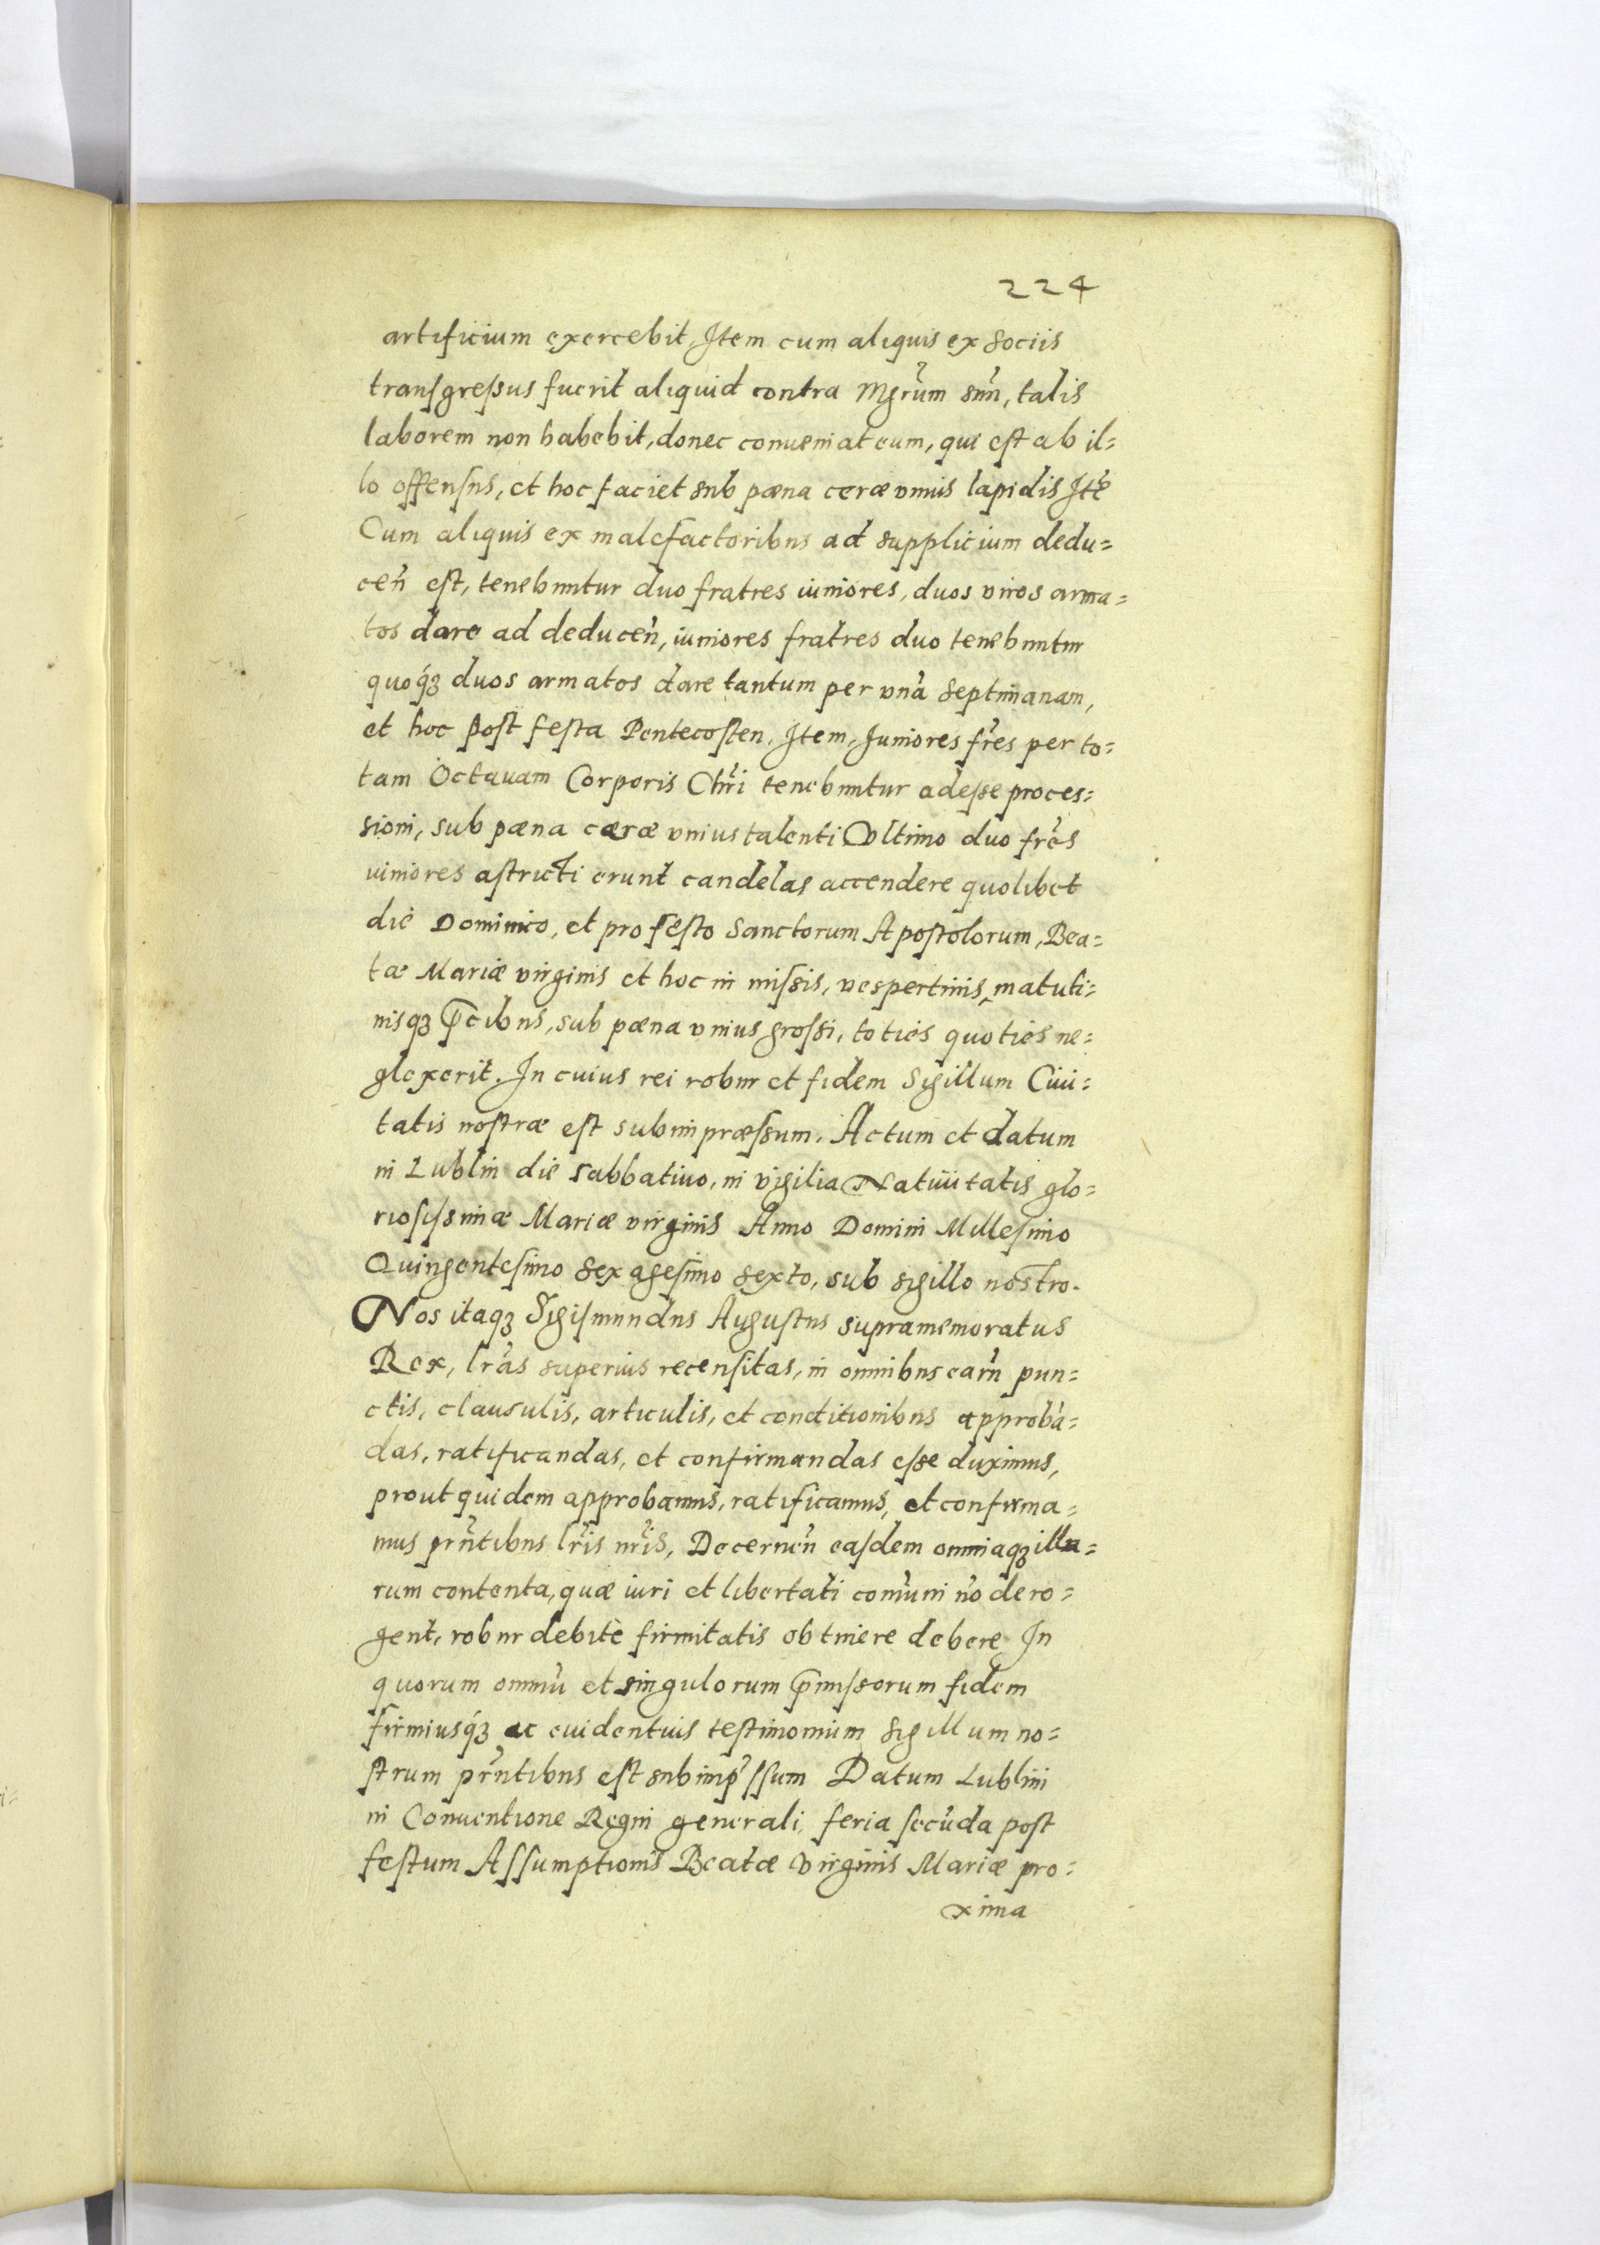 224
artificium exercebit, Item cum aliquis ex sociis
transgressus fuerit aliquid contra Mgrũm sũm, talis
laborem non habebit, donec conueniat eum, qui est ab il=
lo offensus, et hoc faciet sub pæna ceræ vnius lapidis Itẽ
Cum aliquis ex malefactoribus ad supplicium dedu=
ceñ est, tenebuntur duo fratres iuniores, duos viros arma=
tos dare ad deduceñ, iuniores fratres duo tenebuntur
quoq́ꝫ duos armatos dare tantum per vnã septimanam,
et hoc post festa Pentecosten. Item, Juniores fr̃es per to=
tam Octauam Corporis Chr̃i tenebuntur adesse proces=
sioni, sub pæna cæræ vnius talenti Vltimo duo fr̃es
uiniores astricti erunt candelas accendere quolibet
die Dominico, et pro festo Sanctorum Apostolorum, Bea=
tæ Mariæ virginis et hoc in missis, vespertinis, matuti=
nisqꝫ p̃cibus, sub pæna vnius grossi, toties quoties ne=
glexerit. In cuius rei robur et fidem Sigillum Ciui=
tatis nostræ est subimpræssum. Actum et datum
in Lublin die sabbatiuo, in vigilia Natiuitatis glo=
riosissimæ Mariæ virginis Anno Domini Millesimo
Quingentesimo sexagesimo sexto, sub sigillo nostro.
Nos itaqꝫ Sigismundus Augustus supramemoratus
Rex, lr̃as superius recensitas, in omnibus earũ pun=
ctis, clausulis, articulis, et conditionibus approbã=
das, ratificandas, et confirmandas esse duximus,
prout quidem approbamus, ratificamus, et confirma=
mus pr̃ntibus lr̃is nr̃is, Decerneñ easdem omniaqꝫ illa=
rum contenta, quæ iuri et libertati com̃uni nõ dero=
gent, robur debitè firmitatis obtinere debere. In
quorum omniũ et singulorum p̃missorum fidem
firmiusq́ꝫ ac euidentius testimonium sigillum no=
strum pr̃ntibus est subimp̃ssum Datum Lublini
in Conuentione Regni generali, feria secũda post
festum Assumptionis Beatæ Virginis Mariæ pro=
xima